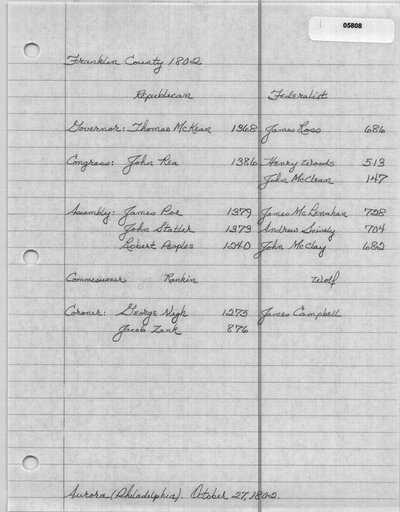 05808
Franklin County 1802
Republican Federalist
Governor: Thomas McKean 1368 James Ross 686
Congress: John Rea 1386 Henry Woods 513
John McClean 147
Assembly: James Poe 1379 James McLenahan 728
John Statler 1373 Andrew 704
Robert Peoples 1240 John McClay 682
Commissioner Rankin Wolf
Coroner: George Nigh 1275 James Campbell
Jacob Zank 876
Aurora (Philadelphia). October 27, 1802.